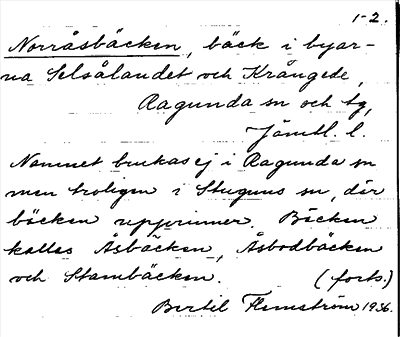 1-2.
Norråsbäcken, bäck i byar-
na Selsålandet och Krångede,
Ragunda sn och tg,
Jämtl. l.
Namnet brukas ej i Ragunda sn
men troligen i Stuguns sn, där
bäcken upprinner. Bäcken
kallas Åsbäcken, Åsbodbäcken
och Stambäcken. (forts.)
Bertil Flemström 1936.